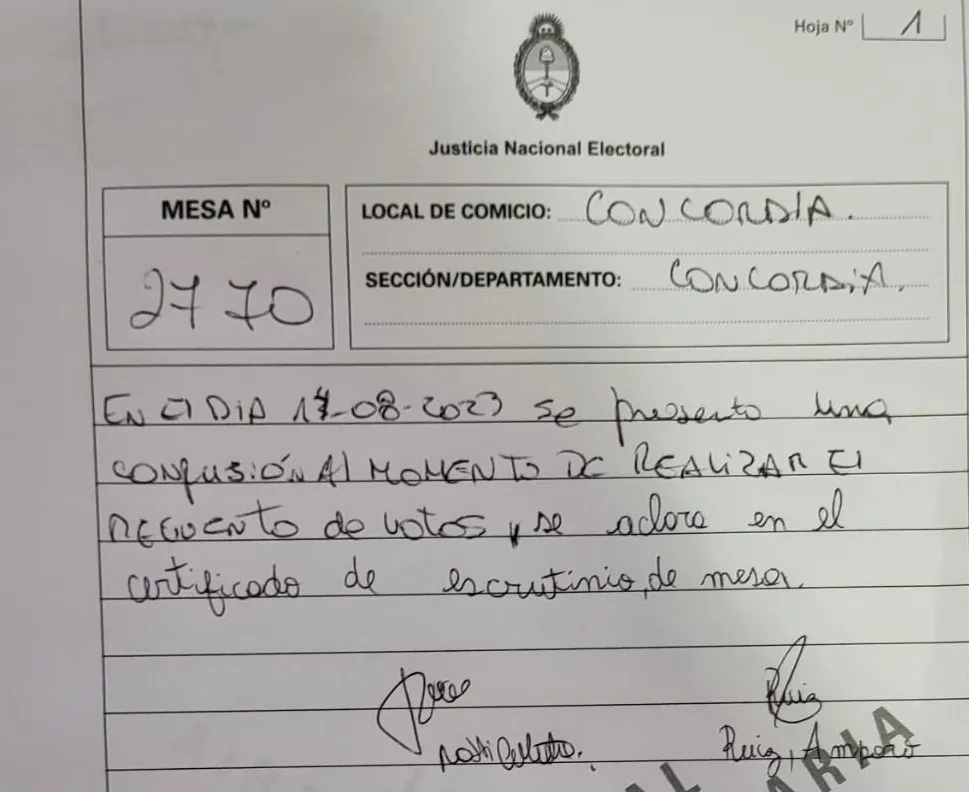 Hoja Nº 1
Justicia Nacional Electoral
MESA Nº
2770
LOCAL DE COMICIO: CONCORDIA.
SECCIÓN/DEPARTAMENTO: CONCORDIA.
EN El DIA 14-08-2023 se presento una
CONFUSIÓN Al MOMENTO DE REALIZAR El
RECUENTO de votos y se aclara en el
certificado de escrutinio, de mesa.
Ruiz
Ruiz, Amparo